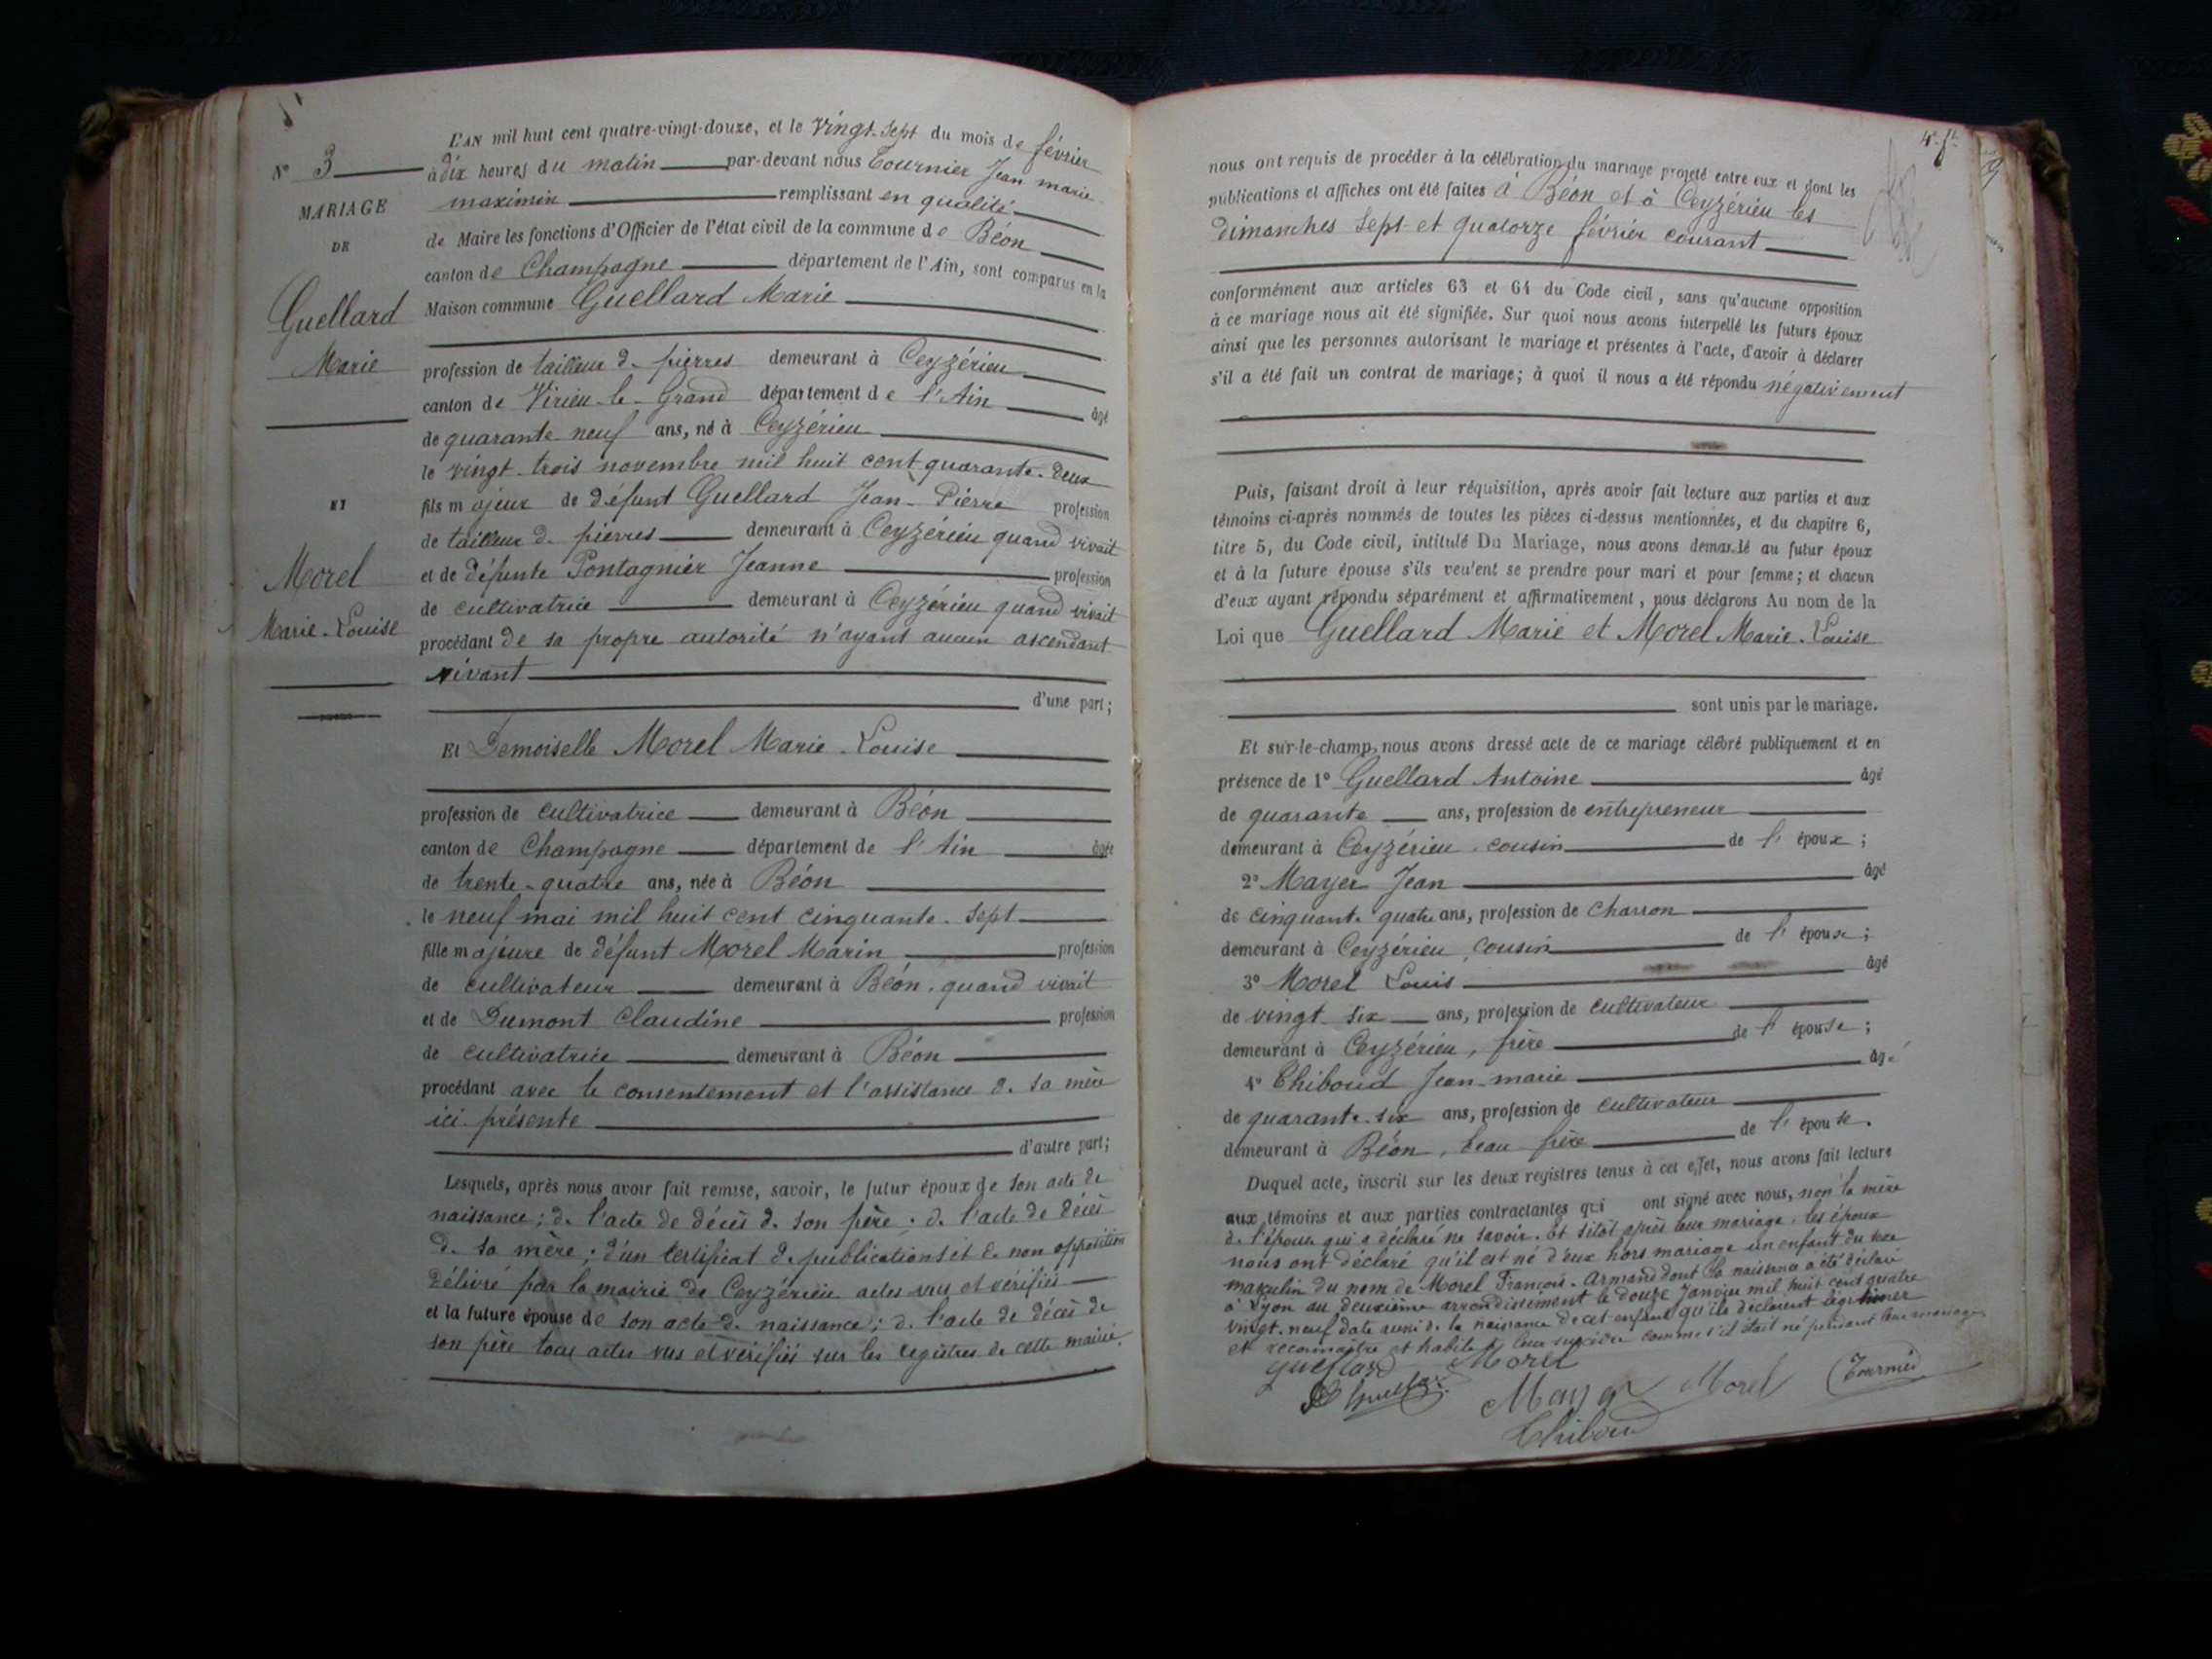 L'AN mil huit cent quatre-vingt-douze, et le vingt-sept du mois de février
N° 3
à dix heures du matin par-devant nous Tournier Jean marie
maximin remplissant en qualité
de Maire les fonctions d'Officier de l'état civil de la commune de Béon
canton de Champagne département de l'Ain, sont comparus en la
Maison commune Guellard Marie
MARIAGE
DE
Guellard
Marie
profession de tailleur de pierres demeurant à Ceyzérieu
canton de Virieu-le-Grand département de l'Ain âgé
de quarante-neuf ans, né à Ceyzérieu
le vingt-trois novembre mil huit cent quarante-deux
fils majeur de défunt Guellard Jean-Pierre profession
de tailleur de pierres demeurant à Ceyzérieu quand vivait
et de défunte Pontagnier Jeanne profession
de cultivatrice demeurant à Ceyzérieu quand vivait
procédant de sa propre autorité n'ayant aucun ascendant
vivant
d'une part;
ET
Morel
Marie-Louise
Et Demoiselle Morel Marie-Louise
profession de cultivatrice demeurant à Béon
canton de Champagne département de l'Ain âgée
de trente-quatre ans, née à Béon
le neuf mai mil huit cent cinquante-sept
fille majeure de défunt Morel Marin profession
de cultivateur demeurant à Béon, quand vivait
et de Dumont Claudine profession
de cultivatrice demeurant à Béon
procédant avec le consentement et l'assistance de sa mère
ici présente
d'autre part;
Lesquels, après nous avoir fait remise, savoir, le futur époux de son acte de
naissance; de l'acte de décès de son père; de l'acte de décès
de sa mère; d'un certificat de publications et de non opposition
délivré par la mairie de Ceyzérieu actes vus et vérifiés
et la future épouse de son acte de naissance; de l'acte de décès de
son père tous actes vus et vérifiés sur les registres de cette mairie.
nous ont requis de procéder à la célébration du mariage projeté entre eux et dont les
publications et affiches ont été faites à Béon et à Ceyzérieu les
dimanches sept et quatorze février courant
conformément aux articles 63 et 64 du Code civil, sans qu'aucune opposition
à ce mariage nous ait été signifiée. Sur quoi nous avons interpellé les futurs époux
ainsi que les personnes autorisant le mariage et présentes à l'acte, d'avoir à déclarer
s'il a été fait un contrat de mariage; à quoi il nous a été répondu négativement
Puis, faisant droit à leur réquisition, après avoir fait lecture aux parties et aux
témoins ci-après nommés de toutes les pièces ci-dessus mentionnées, et du chapitre 6,
titre 5, du Code civil, intitulé Du Mariage, nous avons demandé au futur époux
et à la future épouse s'ils veulent se prendre pour mari et pour femme; et chacun
d'eux ayant répondu séparément et affirmativement, nous déclarons Au nom de la
Loi que Guellard Marie et Morel Marie-Louise
sont unis par le mariage.
Et sur-le-champ, nous avons dressé acte de ce mariage célébré publiquement et en
présence de 1° Guellard Antoine âgé
de quarante ans, profession de entrepreneur
demeurant à Ceyzérieu, cousin de l'époux;
2° Mayer Jean âgé
de cinquante-quatre ans, profession de charron
demeurant à Ceyzérieu, cousin de l'époux;
3° Morel Louis âgé
de vingt-six ans, profession de cultivateur
demeurant à Ceyzérieu, frère de l'épouse;
4° Thiboud Jean-marie âgé
de quarante-six ans, profession de cultivateur
demeurant à Béon, beau-frère de l'épouse.
Duquel acte, inscrit sur les deux registres tenus à cet effet, nous avons fait lecture
aux témoins et aux parties contractantes qui ont signé avec nous, non la mère
de l'épouse qui a déclaré ne savoir. Et sitôt après leur mariage, les époux
nous ont déclaré qu'il est né d'eux hors mariage un enfant du sexe
masculin du nom de Morel François-Armand dont la naissance a été déclaré
à Lyon au deuxième arrondissement le douze Janvier mil huit cent quatre
vingt-neuf date aussi de la naissance de cet enfant qu'ils déclarent légitimer
et reconnaître et habile à leur succéder comme s'il était né pendant leur mariage
Guellard Morel
Guellard Mayer Morel Tournier
Thiboud